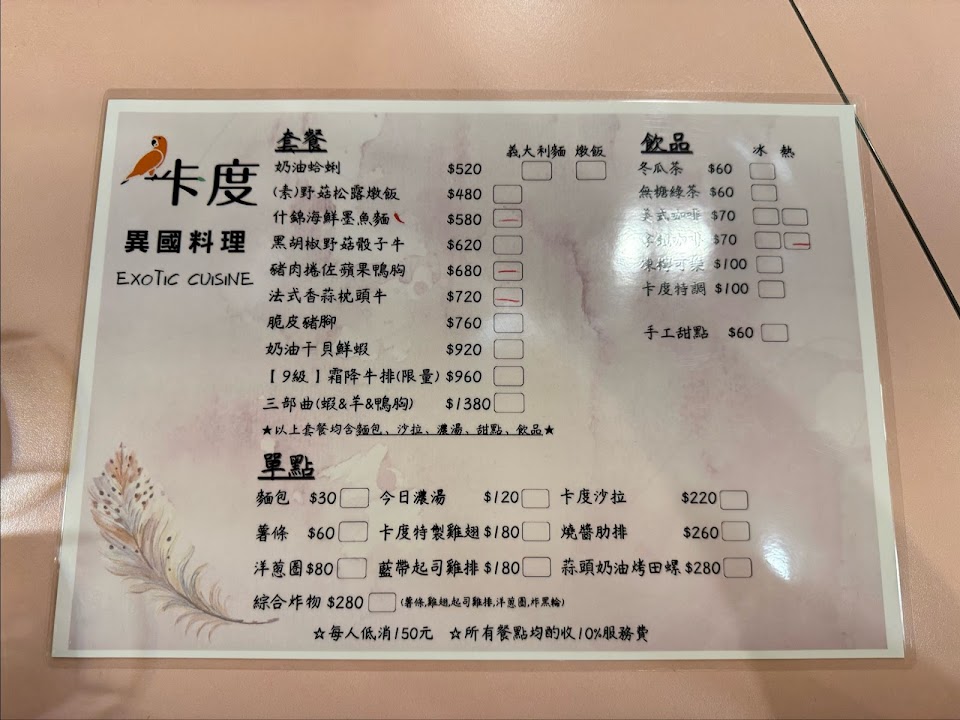 卡度
異國料理
EXOTIC CUISINE
套餐
義大利麵 燉飯
奶油蛤蜊 $520
(素)野菇松露燉飯 $480
什錦海鮮墨魚麵 $580
黑胡椒野菇骰子牛 $620
豬肉捲佐蘋果鴨胸 $680
法式香蒜枕頭牛 $720
脆皮豬腳 $760
奶油干貝鮮蝦 $920
【9級】霜降牛排(限量) $960
三部曲(蝦&羊&鴨胸) $1380
★以上套餐均含麵包、沙拉、濃湯、甜點、飲品★
飲品
冰 熱
冬瓜茶 $60
無糖綠茶 $60
美式咖啡 $70
$70
$100
卡度特調 $100
手工甜點 $60
單點
麵包 $30 今日濃湯 $120 卡度沙拉 $220
薯條 $60 卡度特製雞翅 $180 燒醬肋排 $260
洋蔥圈 $80 藍帶起司雞排 $180 蒜頭奶油烤田螺 $280
綜合炸物 $280 (薯條,雞翅,起司雞排,洋蔥圈,炸黑輪)
☆每人低消150元 ☆所有餐點均酌收10%服務費